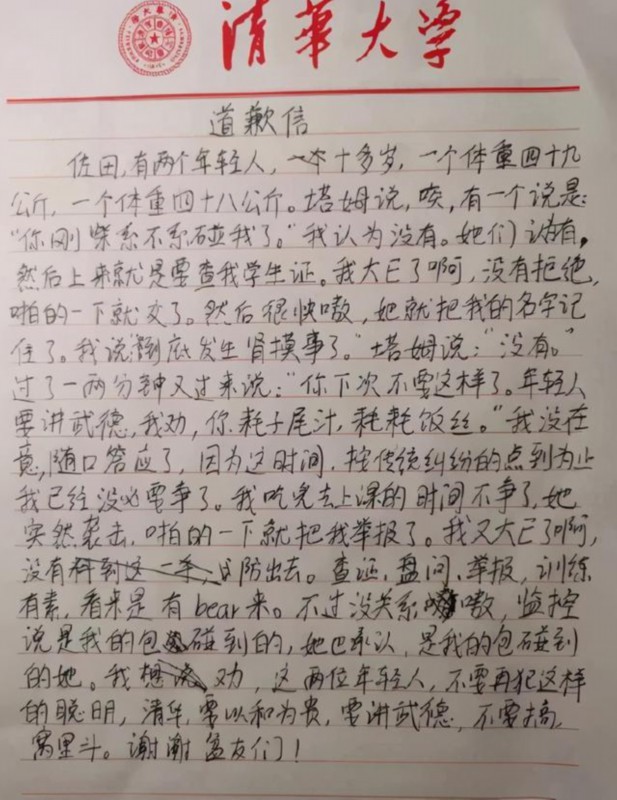 清华大学
道歉信
佐田,有两个年轻人,一个十多岁,一个体重四十九
公斤,一个体重四十八公斤。塔姆说,唉,有一个说是:
“你刚豺系不系碰我了。”我认为没有。她们认为有,
然后上来就是要查我学生证。我大E了啊,没有拒绝,
啪的一下就交了。然后很快嗷,她就把我的名字记
住了。我说“到底发生肾摸事了。”塔姆说:“没有。”
过了一两分钟又过来说:“你下次不要这样了。年轻人
要讲武德,我劝,你耗子尾汁,耗耗饭丝。”我没在
意,随口答应了,因为这时间,按传统纠纷的点到为止
我已经没必要争了。我吃完去上课的时间不争了,她
突然袭击,啪的一下就把我举报了。我又大E了啊,
没有防出去。查证、盘问、举报,训练
有素,看来是有bear来。不过没关系嗷,监控
说是我的包碰到的,她也承认,是我的包碰到
的她。我劝,这两位年轻人,不要再犯这样
的聪明,清华,要以和为贵,要讲武德,不要搞
窝里斗。谢谢盆友们!